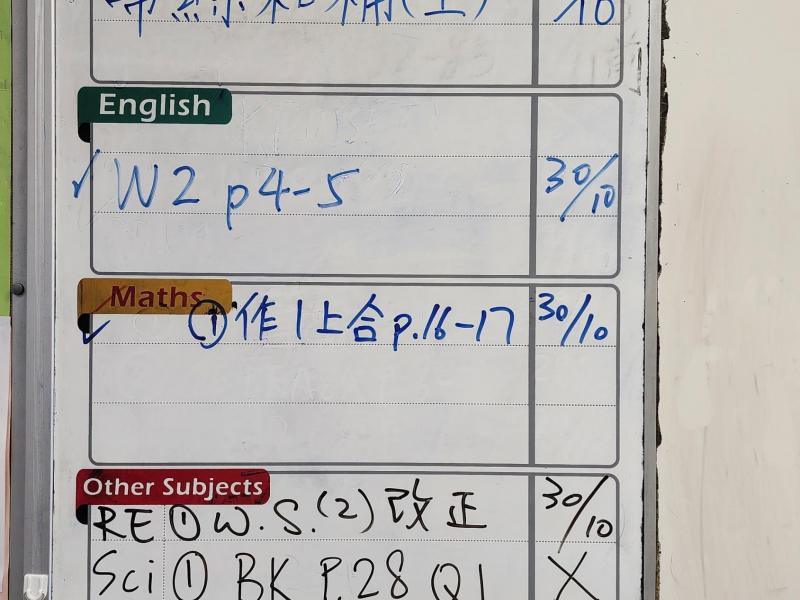 English
✓ W2 p4-5 30/10
Maths
✓ ① 作1上合p.16-17 30/10
Other Subjects
RE ① W.S.(2) 改正 30/10
Sci ① BK P.28 Q1 X